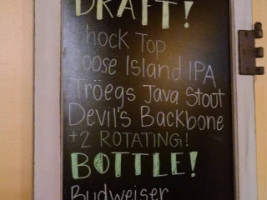 DRAFT!
Shock Top
Goose Island IPA
Tröegs Java Stout
Devil's Backbone
+2 ROTATING!
BOTTLE!
Budweiser